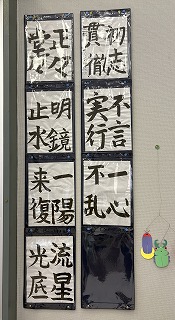 初志
貫徹
不言
実行
一心
不乱
正々
堂々
明鏡
止水
一陽
来復
流星
光底